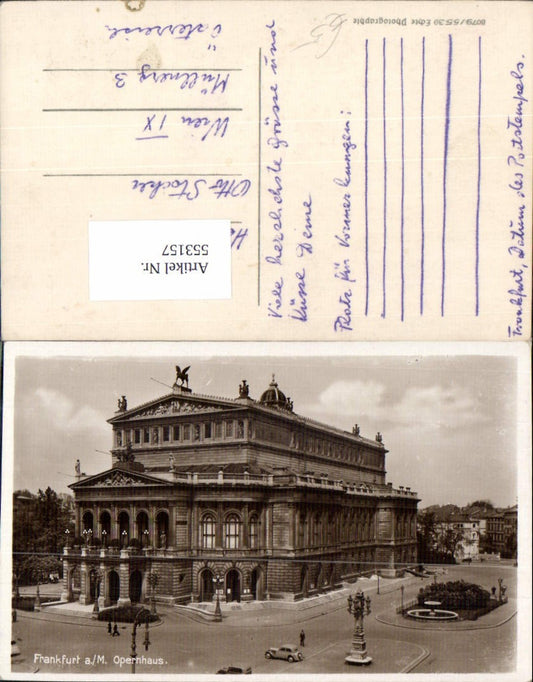 8079/5530 Echte Photographie
Frankfurt, Datum des Poststempels.
Platz für Vormerkungen:
Viele herzlichste Grüsse und
Küsse Deine
H
Otto Stocker
Wien IX
Müllnerg 3
Österreich
Artikel Nr.
553157
Frankfurt a/M. Opernhaus.